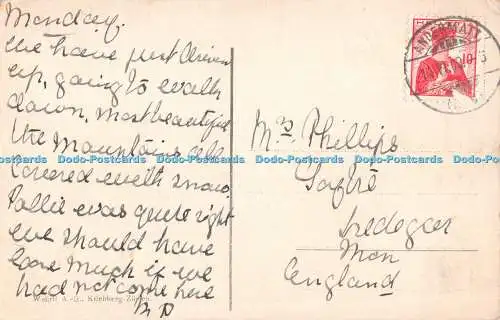 Monday.
We have just driven
up, going to walk
down, most beautiful
the mountains all
covered with snow.
Pollie was quite right
we should have
lost much if we
had not come here
Mrs Phillips
Tredegar
Mon
England
ANDERMATT
10
Wehrli A.-G., Kilchberg-Zürich.
Dodo-Postcards Dodo-Postcards Dodo-Postcards Dodo-Postcards Dodo-Postcards Dodo-Postcards